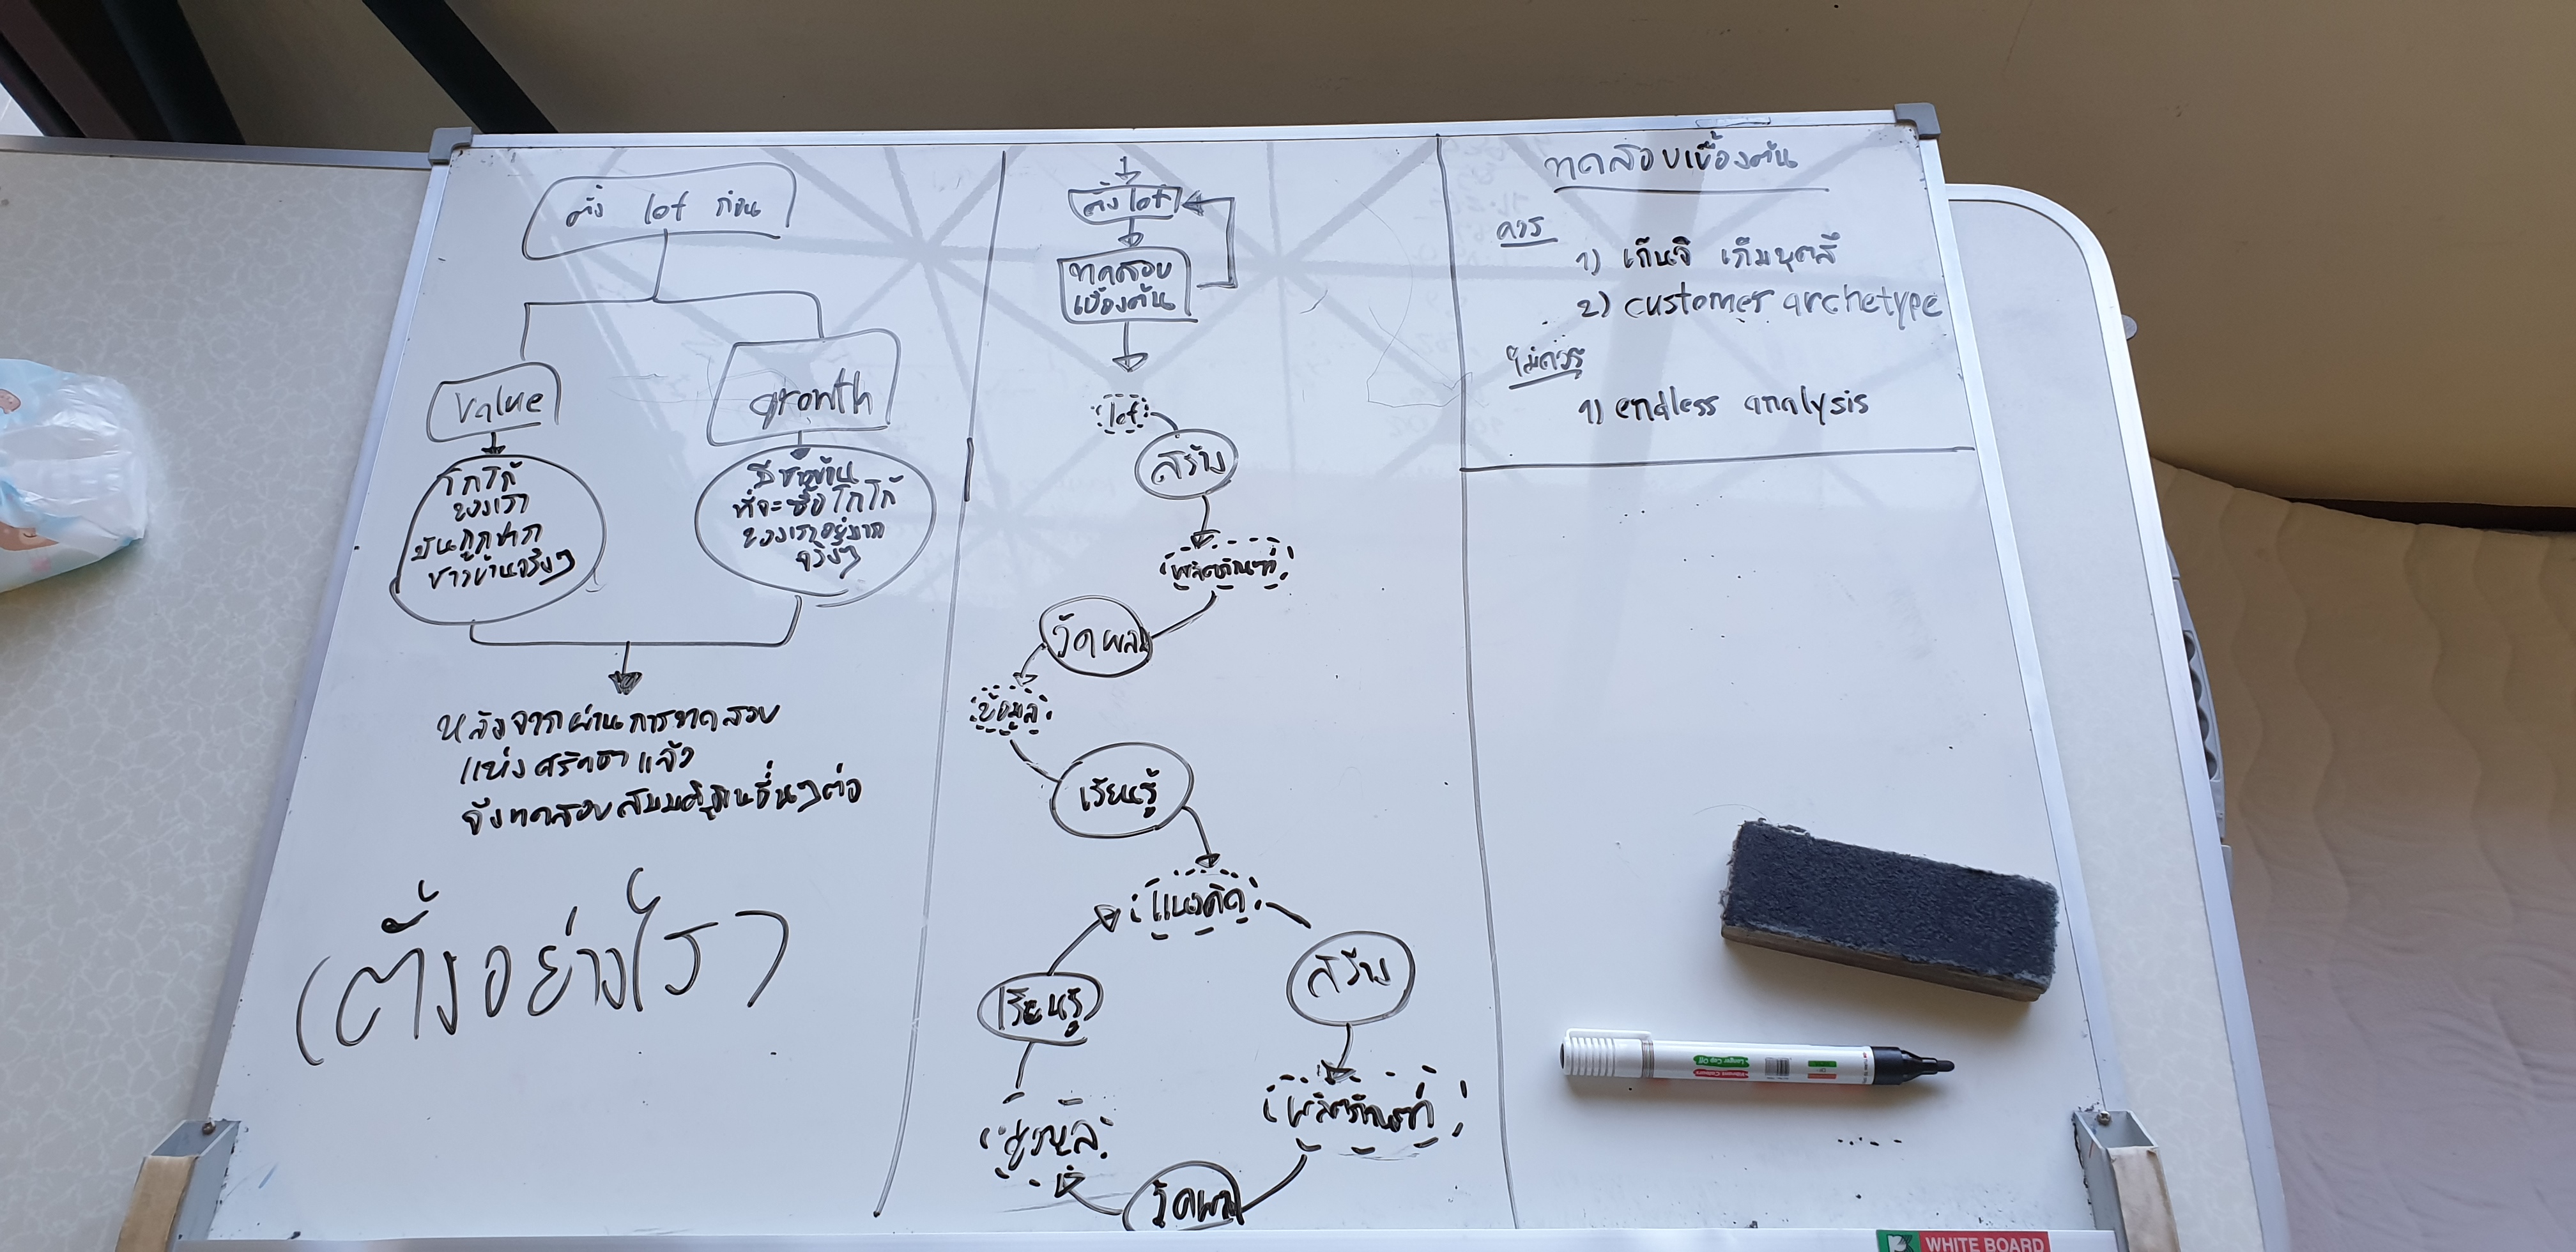 ตั้ง lof ก่อน
value
growth
โกโก้
ของเรา
มันถูกปาก
ชาวบ้านจริงๆ
มีชาวบ้าน
ที่จะซื้อโกโก้
ของเราอยู่มาก
จริงๆ
หลังจากผ่านการทดสอบ
แห่งศรัทธาแล้ว
จึงทดสอบสมมติฐานอื่นๆต่อ
(ตั้งอย่างไร)
ตั้ง lof
ทดสอบ
เบื้องต้น
lof
สร้าง
ผลิตภัณฑ์
วัดผล
ข้อมูล
เรียนรู้
แนวคิด
สร้าง
ผลิตภัณฑ์
วัดผล
ข้อมูล
เรียนรู้
ทดสอบเบื้องต้น
ควร
1) เก็นจิ เก็มบุตสึ
2) customer archetype
ไม่ควร
1) endless analysis
WHITE BOARD